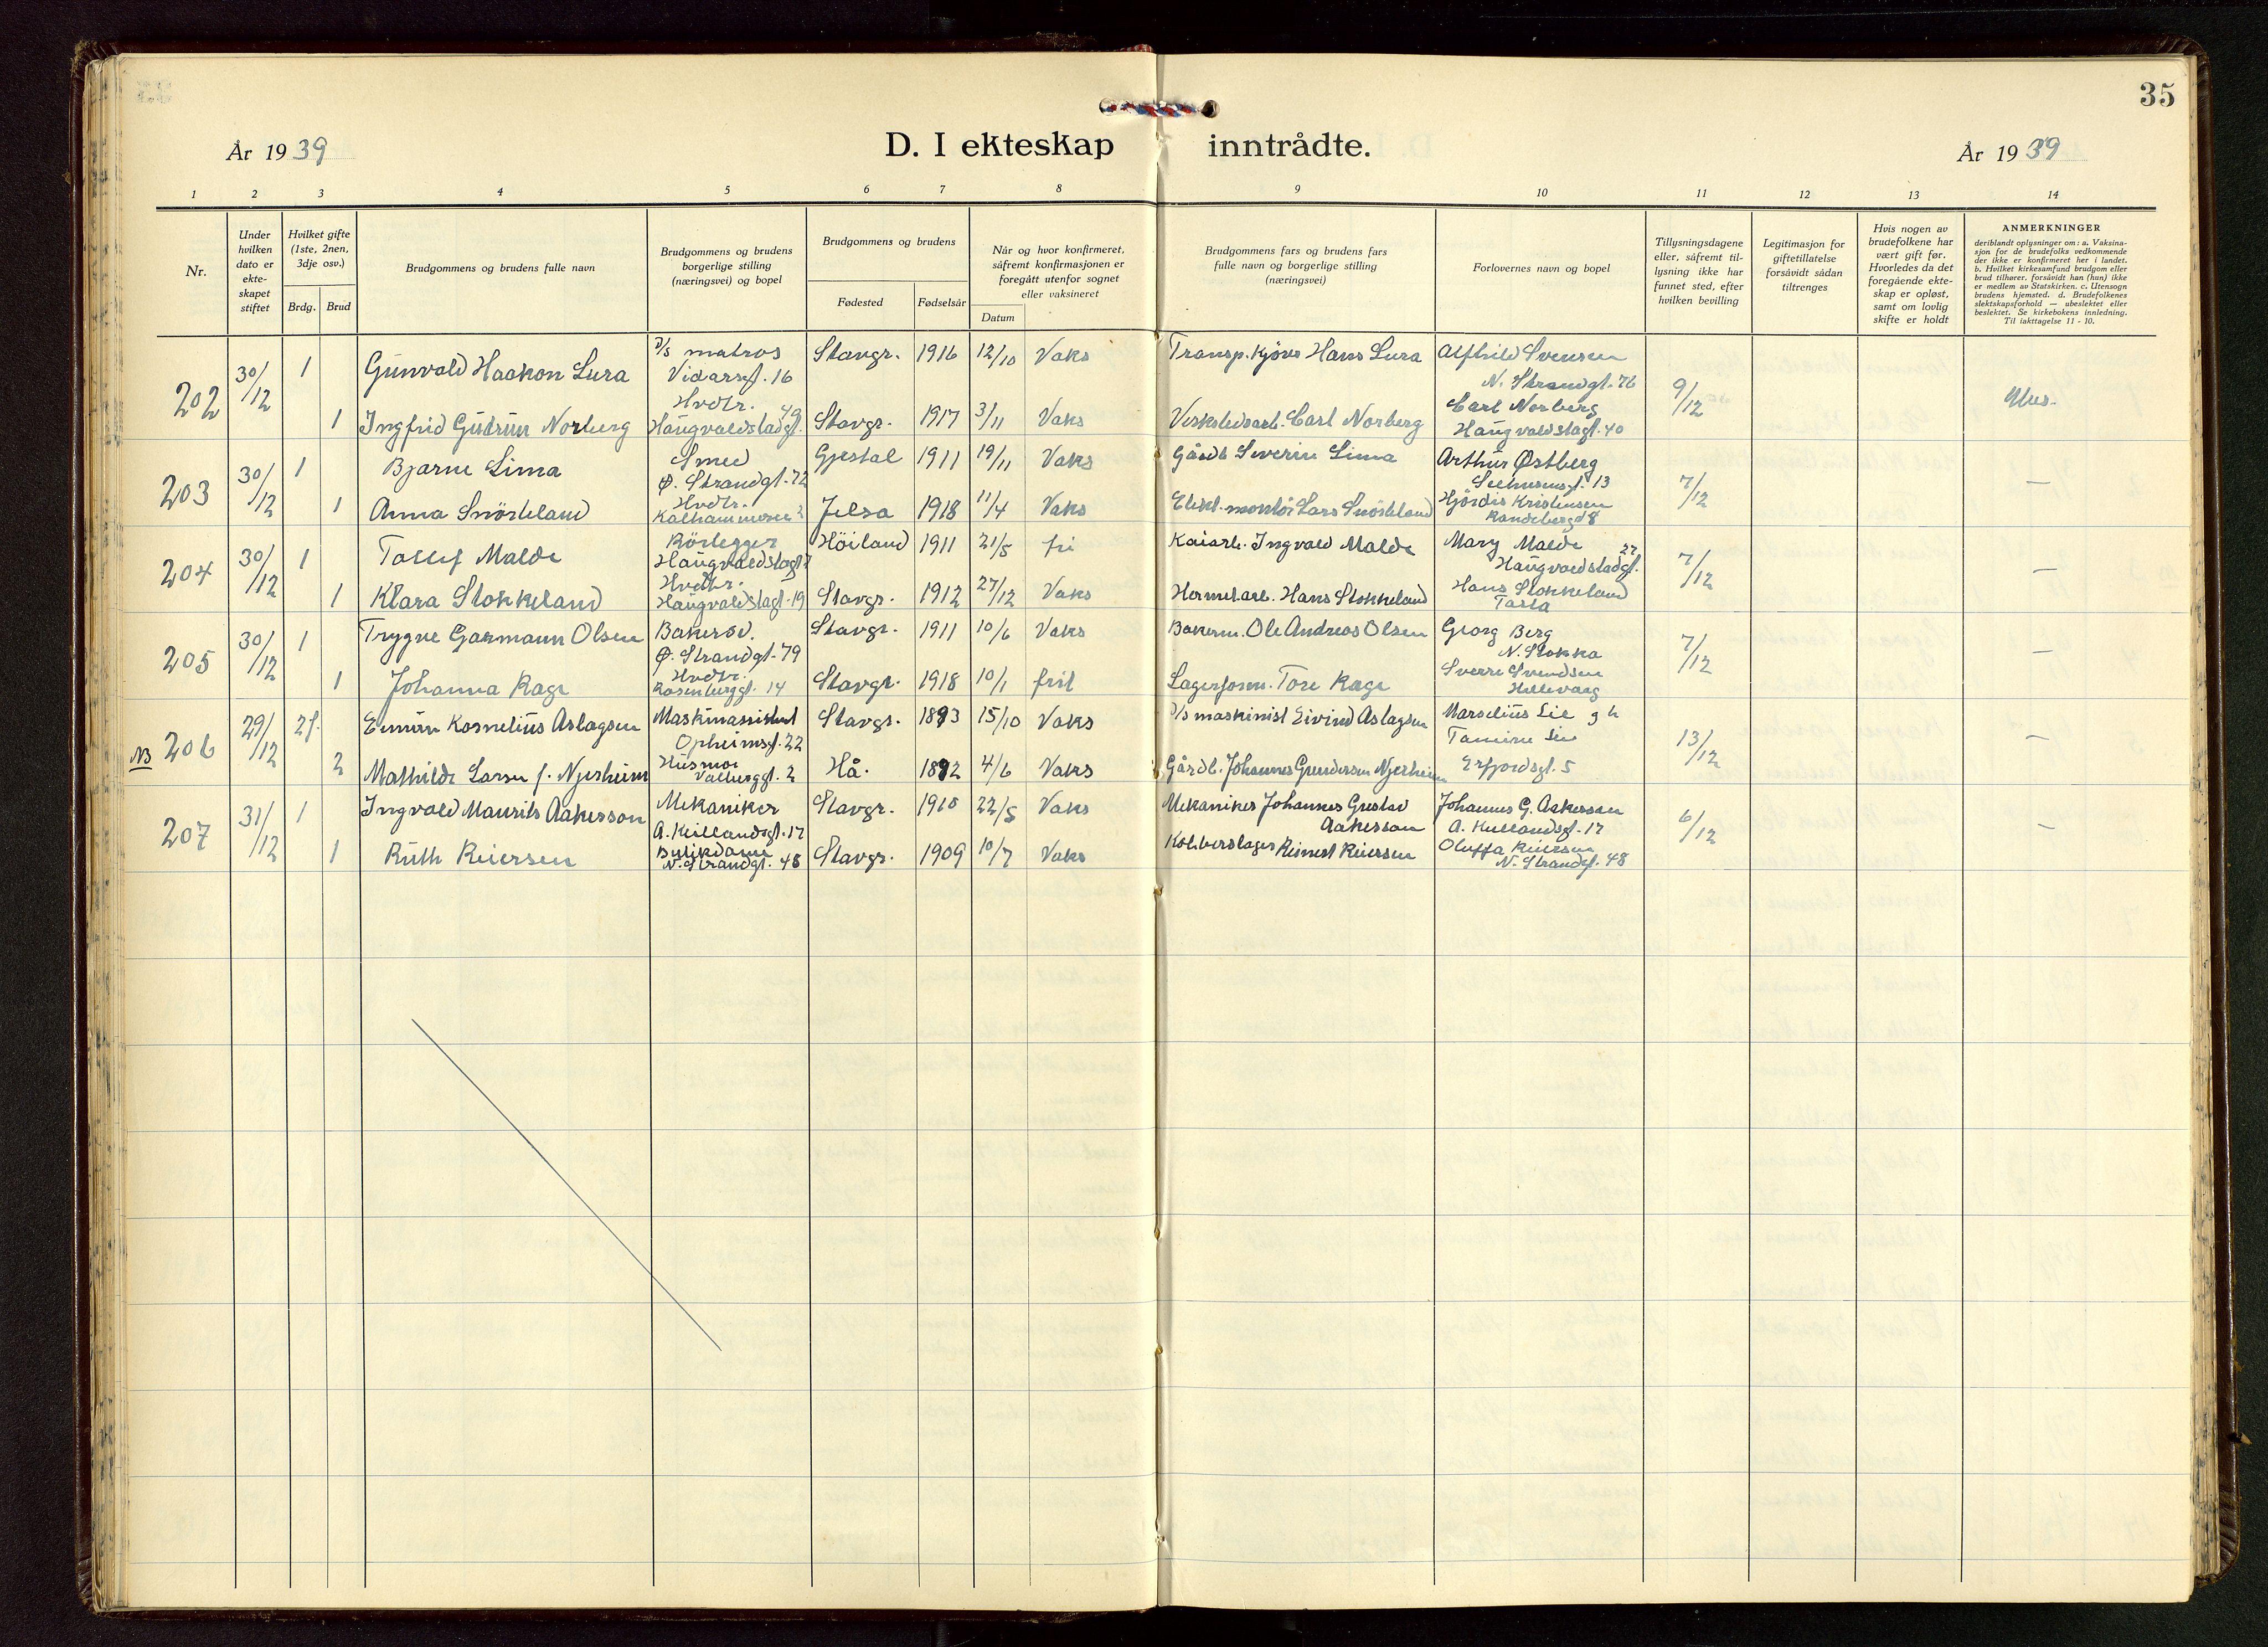 35
År 1939
D. I ekteskap inntrådte.
År 1939
1 2 3 4 5 6 7 8 9 10 11 12 13 14
Nr.
Under hvilken dato er ekte-skapet stiftet
Hvilket gifte (1ste, 2nen, 3dje osv.)
Brdg.
Brud
Brudgommens og brudens fulle navn
Brudgommens og brudens borgerlige stilling (næringsvei) og bopel
Brudgommens og brudens
Fødested
Fødselsår
Når og hvor konfirmeret, såfremt konfirmasjonen er foregått utenfor sognet eller vaksineret
Datum
Brudgommens fars og brudens fars fulle navn og borgerlige stilling (næringsvei)
Forlovernes navn og bopel
Tillysningsdagene eller, såfremt til-lysning ikke har funnet sted, efter hvilken bevilling
Legitimasjon for giftetillatelse forsåvidt sådan tiltrenges
Hvis nogen av brudefolkene har vært gift før. Hvorledes da det foregående ekte-skap er opløst, samt om lovlig skifte er holdt
ANMERKNINGER
deriblandt oplysninger om: a. Vaksina-sjon for de brudefolks vedkommende der ikke er konfirmeret her i landet. b. Hvilket kirkesamfund brudgom eller brud tilhører, forsåvidt han (hun) ikke er medlem av Statskirken. c. Utensogn brudens hjemsted. d. Brudefolkenes slektskapsforhold — ubeslektet eller beslektet. Se kirkebokens innledning. Til iakttagelse 11 - 10.
202 30/12 1 Gunvald Haakon Lura D/s matros Vidarsgt. 16 Stavgr. 1916 12/10 Vaks Transp.kjører Hans Lura Alfhild Svensen N. Strandgt. 76 9/12 Ubes.
1 Ingfrid Gudrun Norberg Hvdtr. Haugvaldstadgt. 40 Stavgr. 1917 3/11 Vaks Verkstedsarb. Carl Norberg Carl Norberg Haugvaldstagt. 40
203 30/12 1 Bjarne Lima Smed Ø. Strandgt. 72 Gjestal 1911 19/11 Vaks Gårdb Severin Lima Arthur Østberg Seehusensgt. 13 7/12 —
1 Anna Snörteland Hvdtr. Kalhammeren 2 Jelsa 1918 11/4 Vaks Elekt.montör Lars Snörteland Hjördis Kristensen Randebergd 8
204 30/12 1 Tollef Malde Rörlegger Haugvaldstagt Höiland 1911 21/5 fri Kaiarb. Ingvald Malde Mary Malde Haugvaldstadgt. 27 7/12 —
1 Klara Stokkeland Hvdtr. Haugvaldstagt. 19 Stavgr. 1912 27/12 Vaks Hermet.arb. Hans Stokkeland Hans Stokkeland Tasta
205 30/12 1 Trygve Garmann Olsen Bakersv. Ø. Strandgt. 79 Stavgr. 1911 10/6 Vaks Bakerm. Ole Andreas Olsen Georg Berg N. Stokka 7/12 —
1 Johanna Rage Hvdtr. Rosenberggt. 14 Stavgr. 1918 10/1 frit Lagerform. Tore Rage Sverre Svendsen Hillevaag
NB 206 29/12 2f. Kornelius Aslagsen Maskinassistent Opheimsgt. 22 Stavgr. 1893 15/10 Vaks D/s maskinist Eivind Aslagsen Marselius Lie g h Tamine Lie 13/12 —
2 Mathilde Larsen f. Njerheim Husmor Valberggt. 2 Hå. 1892 4/6 Vaks Gårdb. Johannes Gundersen Njerheim Erfjordsgt. 5
207 31/12 1 Ingvald Maurits Aakerson Mekaniker A. Kiellandsgt. 17 Stavgr. 1910 22/5 Vaks Mekaniker Johannes Gustav Aakerson Johannes G. Aakerson A. Kiellandsgt. 17 6/12 —
1 Ruth Reiersen Butikdame N. Strandgt. 48 Stavgr. 1909 10/7 Vaks Kobberslager Reinert Reiersen Oluffa Reiersen N. Strandgt. 48